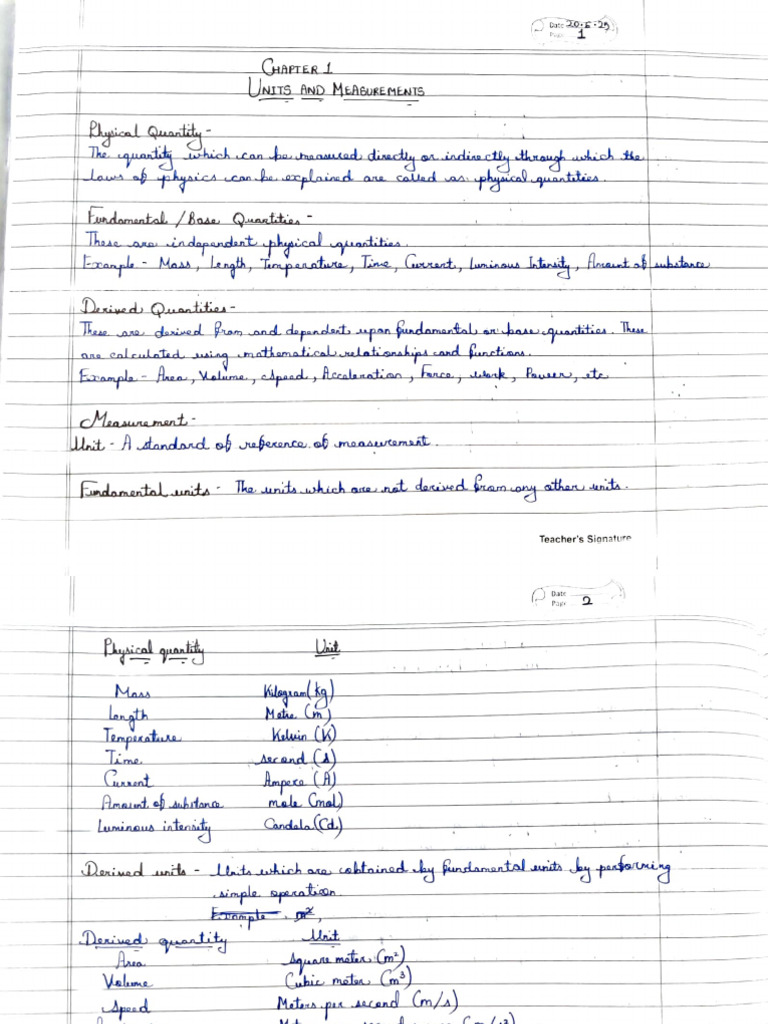 Date 20.5.25
Page 1
CHAPTER 1
UNITS AND MEASUREMENTS
Physical Quantity -
The quantity which can be measured directly or indirectly through which the
laws of physics can be explained are called as physical quantities.
Fundamental / Base Quantities -
These are independent physical quantities.
Example - Mass, Length, Temperature, Time, Current, Luminous Intensity, Amount of substance
Derived Quantities -
These are derived from and dependent upon fundamental or base quantities. These
are calculated using mathematical relationships and functions.
Example - Area, Volume, Speed, Acceleration, Force, work, Power, etc
Measurement -
Unit - A standard of reference of measurement.
Fundamental units - The units which are not derived from any other units.
Teacher's Signature
Date
Page 2
Physical quantity Unit
Mass Kilogram (kg)
Length Metre (m)
Temperature Kelvin (K)
Time second (s)
Current Ampere (A)
Amount of substance mole (mol)
Luminous intensity Candala (Cd)
Derived units - Units which are obtained by fundamental units by performing
simple operation.
Example - m²,
Derived quantity Unit
Area Square meter (m²)
Volume Cubic meter (m³)
Speed Meters per second (m/s)